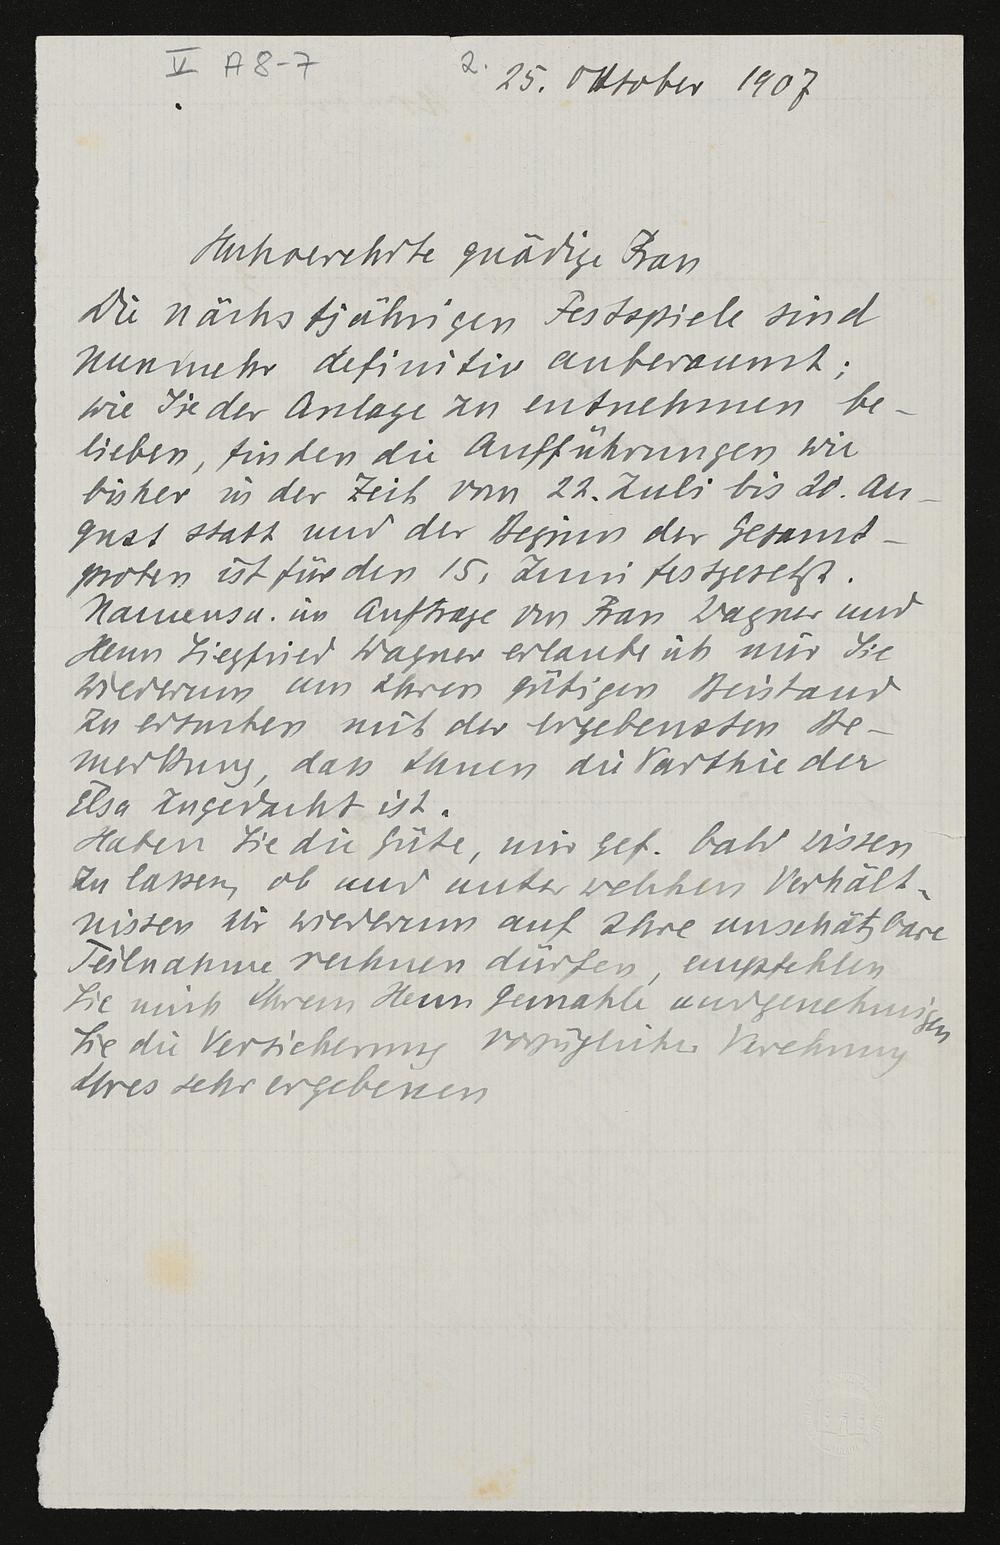 V A 8-7
2.
25. Oktober 1907
Hochverehrte gnädige Frau
Die nächstjährigen Festspiele sind
nunmehr definitiv anberaumt;
wie Sie der Anlage zu entnehmen be-
lieben, finden die Aufführungen wie
bisher in der Zeit vom 22. Juli bis 20. Au-
gust statt und der Beginn der Gesamt-
proben ist für den 15. Juni festgesetzt.
Namens u. im Auftrage von Frau Wagner und
Herrn Siegfried Wagner erlaube ich mir Sie
wiederum um Ihren gütigen Beistand
zu ersuchen mit der ergebensten Be-
merkung, dass Ihnen die Parthie der
Elsa zugedacht ist.
Haben Sie die Güte, mir gef. bald wissen
zu lassen, ob und unter welchen Verhält-
nissen wir wiederum auf Ihre unschätzbare
Teilnahme rechnen dürfen, empfehlen
Sie mich Ihrem Herrn Gemahle und genehmigen
Sie die Versicherung vorzüglicher Verehrung
Ihres sehr ergebenen